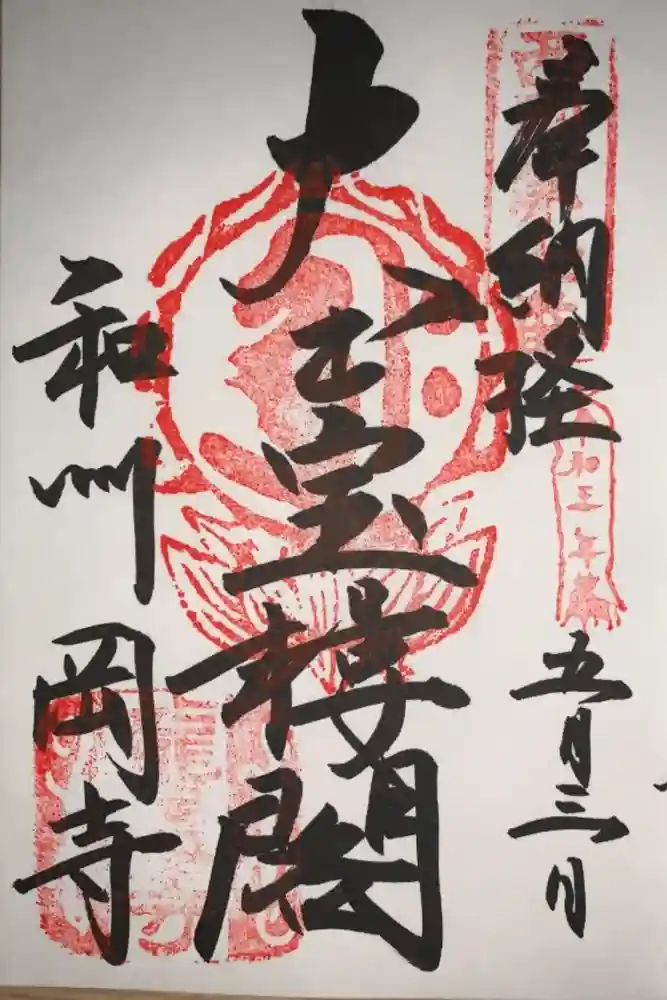 奉納経
令和三年
五月三日
大士宝楼閣
和州
岡寺